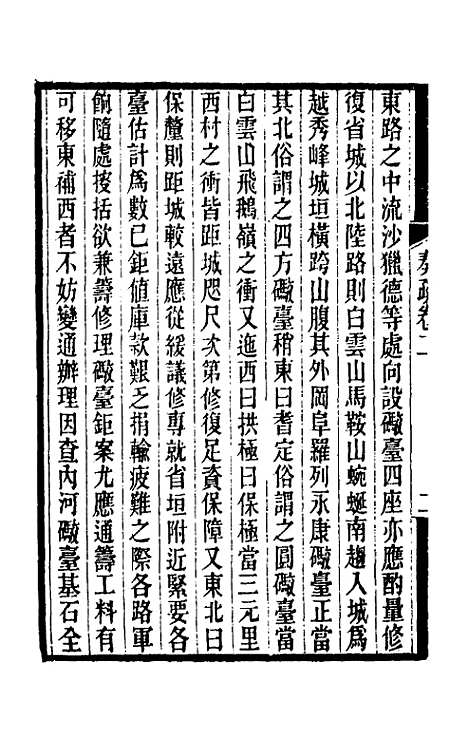 東路之中流沙獵德等處向設礮臺四座亦應酌量修
復省城以北陸路則白雲山馬鞍山蜿蜒南趨入城爲
越秀峰城垣橫跨山腹其外岡阜羅列永康礮臺正當
其北俗謂之四方礮臺稍東曰耆定俗謂之圓礮臺當
白雲山飛鵝嶺之衝又迤西曰拱極曰保極當三元里
西村之衝皆距城咫尺次第修復足資保障又東北曰
保釐則距城較遠應從緩議修專就省垣附近緊要各
臺估計爲數已鉅值庫款艱乏捐輸疲難之際各路軍
餉隨處搜括欲兼籌修理礮臺鉅案尤應通籌工料有
可移東補西者不妨變通辦理因查內河礮臺基石全
奏疏卷二
二